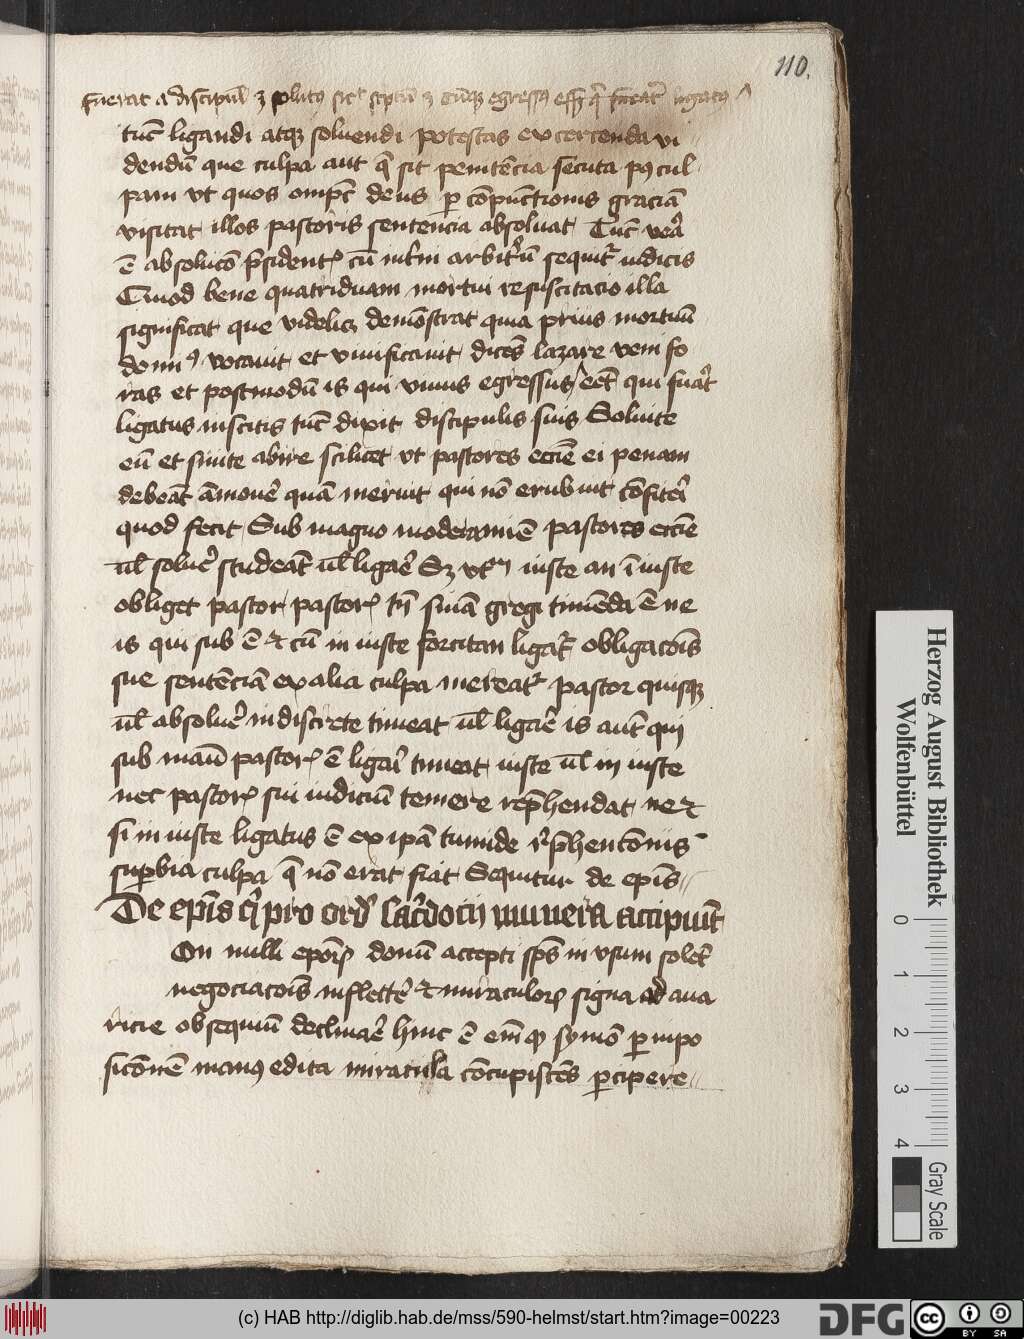 110.
fuerat a discipul(is) ⁊ solut(us) sic(ut) scptu(m) ⁊ cu(m)q(ue) egressus e(ss)z q(ui) fuerat ligat(us)
tu(n)c ligandi atq(ue) soluendi potestas excercenda vi
dendu(m) que culpa aut q(ue) sit penite(n)cia secuta p(ost) cul
pam vt quos omp(oten)c deus p(er) co(m)punctionis gracia(m)
visitat illos pastoris sentencia absoluat Tu(n)c vera
e(st) absoluco(n) p(re)sident(is) cu(m) int(er)ni arbit(ri)u(m) sequit(ur) iudicis
Quod bene quatriduam mortui resuscitacio illa
significat que videlicz demo(n)strat quia prius mortuu(m)
domi(n)(us) vocauit et viuificauit dice(n)s lazare veni fo
ras et postmodu(m) is qui viuus egressus eet qui fu(er)at
ligatus institis tu(n)c dixit discipulis suis Soluite
eu(m) et sinite abire scilicet vt pastores eccie ei penam
debea(n)t amoue(re) qua(m) meruit qui no(n) erubuit co(n)fite(ri)
quod fecit Sub magno moderami(n)e pastores eccie
u(e)l solue(re) studea(n)t u(e)l liga(re) Sz vt(rum) iuste an i(n)iuste
obliget pastor pastor(is) t(ame)n s(ente)n(t)ia(m) gregi time(n)da e(st) ne
is qui sub e(st) ⁊ cu(m) in iuste forcitan ligat(ur) obligaco(n)is
sue sente(n)cia(m) ex alia culpa mereat(ur) pastor quisq(ue)
u(e)l absolue(re) indiscrete timeat u(e)l liga(re) is aut(em) qui
sub manu pastor(is) e(st) liga(ri) timeat iuste u(e)l in iuste
nec pastor(is) sui iudiciu(m) temere rep(re)hendat ne ⁊
si in iuste ligatus e(st) ex ipa tumide r(e)p(re)hento(n)nis
sup(er)bia culpa q(ue) no(n) erat fiat Sequitur de epis
De ep(iscop)is q(ui) pro ord(ine) sac(er)docij munera accipiu(n)t
On nulli epor(um) donu(m) accepti sp(iritu)s in vsum sole(n)t
negociaco(n)is inflecte(re) ⁊ miraculor(um) signa ad aua
ricie obsequiu(m) declina(re) hinc e(st) eni(m) q(uod) symo(n) p(er) inpo
sico(n)ne(m) man(us) edita miracula co(n)cupisce(n)s p(er)cipere
Herzog August Bibliothek
Wolfenbüttel
0 1 2 3 4
Gray Scale
(c) HAB http://diglib.hab.de/mss/590-helmst/start.htm?image=00223
DFG
CC BY SA